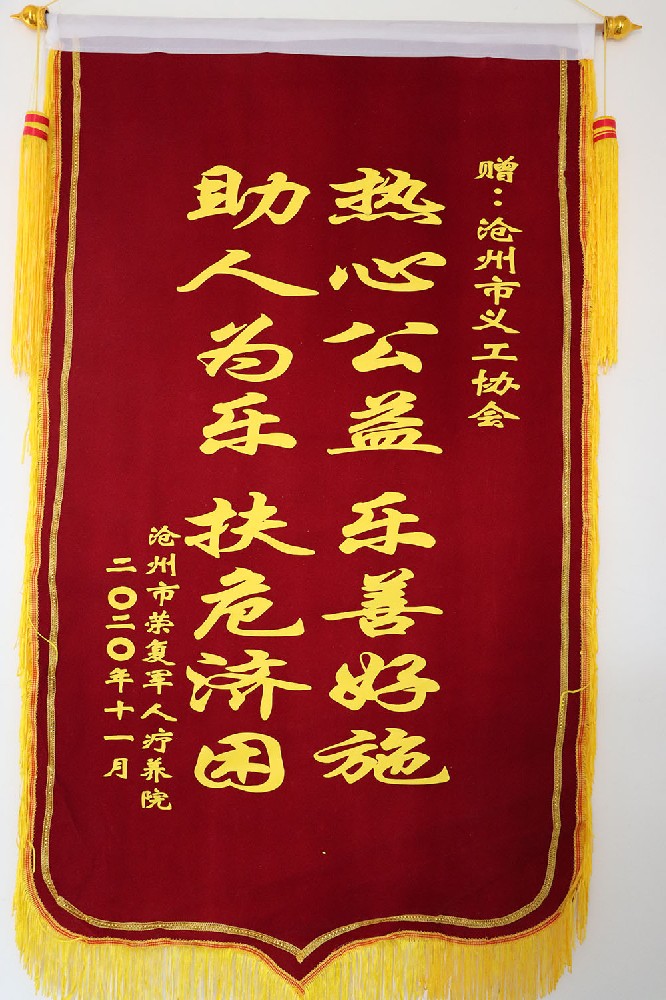 赠：沧州市义工协会
热心公益 乐善好施
助人为乐 扶危济困
沧州市荣复军人疗养院
二〇二〇年十一月